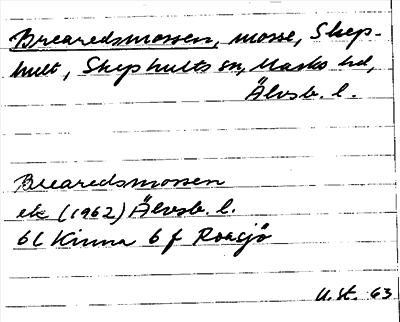 Brearedsmossen, mosse, Skep-
hult, Skephults sn, Marks hd,
Älvsb. l.
Brearedsmossen
ek (1962) Älvsb. l.
6C Kinna 6 f Roasjö
U. St. 63